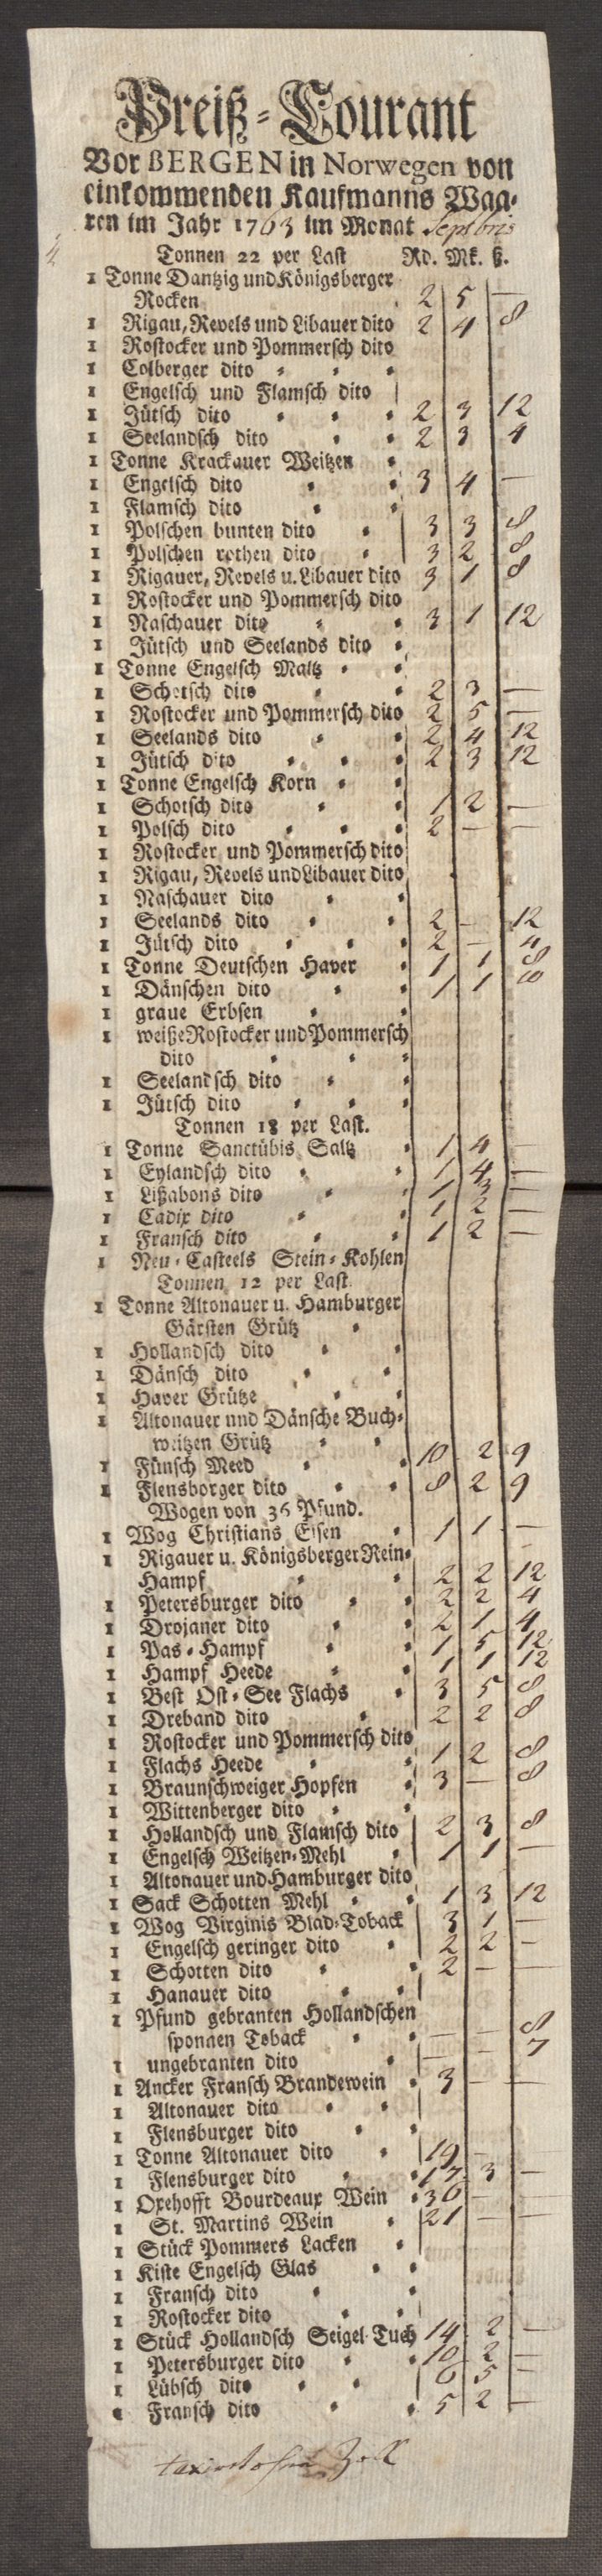 Preiß-Courant
Vor BERGEN in Norwegen von
einkommenden Kaufmanns Waa-
ren im Jahr 1763 im Monat Septbris
Tonnen 22 per Last Rd. Mk. ß.
1 Tonne Dantzig und Königsberger
Rocken 2 5 —
1 Rigau, Revels und Libauer dito 2 4 8
1 Rostocker und Pommersch dito
1 Colberger dito
1 Engelsch und Flamsch dito
1 Jütsch dito 2 3 12
1 Seelandsch dito 2 3 4
1 Tonne Krackauer Weitzen
1 Engelsch dito 3 4 —
1 Flamsch dito
1 Polschen bunten dito 3 3 8
1 Polschen rothen dito 3 2 8
1 Rigauer, Revels u. Libauer dito 3 1 8
1 Rostocker und Pommersch dito
1 Naschauer dito 3 1 12
1 Jütsch und Seelands dito
1 Tonne Engelsch Maltz
1 Schotsch dito 2 3 —
1 Rostocker und Pommersch dito 2 5 —
1 Seelands dito 2 4 12
1 Jütsch dito 2 3 12
1 Tonne Engelsch Korn
1 Schotsch dito 1 2 —
1 Polsch dito 2 — —
1 Rostocker und Pommersch dito
1 Rigau, Revels und Libauer dito
1 Naschauer dito
1 Seelands dito 2 - 12
1 Jütsch dito 2 — 4
1 Tonne Deutschen Haver 1 1 8
1 Dänschen dito 1 1 8
1 graue Erbsen
1 weiße Rostocker und Pommersch
dito
1 Seelandsch dito
1 Jütsch dito
Tonnen 18 per Last.
1 Tonne Sanctübis Saltz 1 4 —
1 Eylandsch dito 1 4 —
1 Lißabons dito 1 3 —
1 Cadix dito 1 2 —
1 Fransch dito 1 2 —
1 Neu-Casteels Stein-Kohlen
Tonnen 12 per Last
1 Tonne Altonauer u. Hamburger
Gärsten Grütz
1 Hollandsch dito
1 Dänsch dito
1 Haver Grütze
1 Altonauer und Dänsche Buch-
weitzen Grütz
1 Fünsch Meed 10 2 9
1 Flensborger dito 8 2 9
Wogen von 36 Pfund.
1 Wog Christians Eisen 1 1 —
1 Rigauer u. Königsberger Rein-
Hampf 2 2 12
1 Petersburger dito 2 2 4
1 Drojaner dito 2 1 4
1 Pas-Hampf 1 5 12
1 Hampf Heede 1 1 12
1 Best Ost-See Flachs 3 5 8
1 Dreband dito 2 2 8
1 Rostocker und Pommersch dito
1 Flachs Heede 1 2 8
1 Braunschweiger Hopfen 3 — 8
1 Wittenberger dito
1 Hollandsch und Flamsch dito 2 3 8
1 Engelsch Weitzen-Mehl 1 1 —
1 Altonauer und Hamburger dito
1 Sack Schotten Mehl 1 3 12
1 Wog Virginis Blad-Toback 3 1 —
1 Engelsch geringer dito 2 2 —
1 Schotten dito 2 — —
1 Hanauer dito
1 Pfund gebranten Hollandschen
sponnen Toback — — 8
1 ungebranten dito — — 7
1 Ancker Fransch Brandewein 3 — —
1 Altonauer dito
1 Flensburger dito
1 Tonne Altonauer dito 19 - -
1 Flensburger dito 17 3 —
1 Oxehofft Bourdeaux Wein 36 — —
1 St. Martins Wein 21 — —
1 Stück Pommers Lacken
1 Kiste Engelsch Glas
1 Fransch dito
1 Rostocker dito
1 Stück Hollandsch Seigel-Tuch 14 2 —
1 Petersburger dito 10 2 —
1 Lübsch dito 6 5 —
1 Fransch dito 5 2 —
Zoll